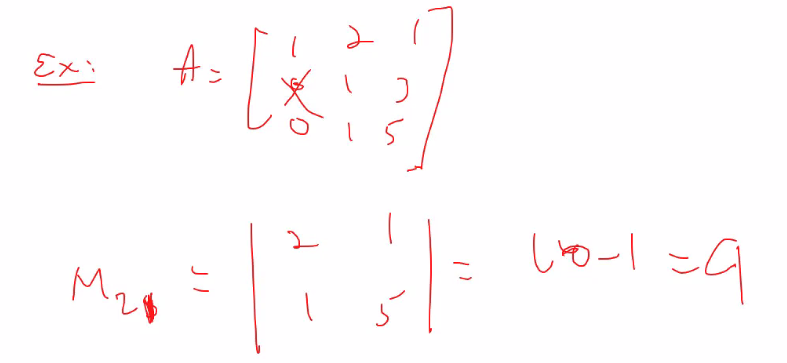 Ex: A = [ 1 2 1
1 3
0 1 5 ]
M21 = | 2 1 | = 10 - 1 = 9
| 1 5 |